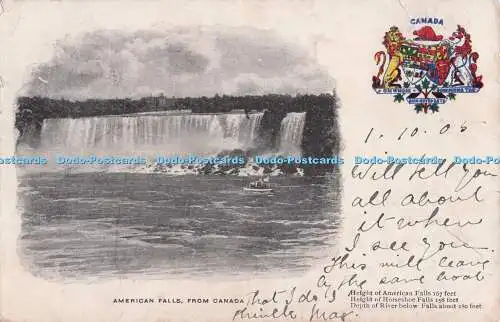 CANADA
1.10.05
Will tell you
all about
it when
I see you
This will leave
by the same boat
that I do
Dodo-Postcards Dodo-Postcards Dodo-Postcards Dodo-Postcards Dodo-Postcards
AMERICAN FALLS, FROM CANADA
Height of American Falls 167 feet
Height of Horseshoe Falls 158 feet
Depth of River below Falls about 180 feet